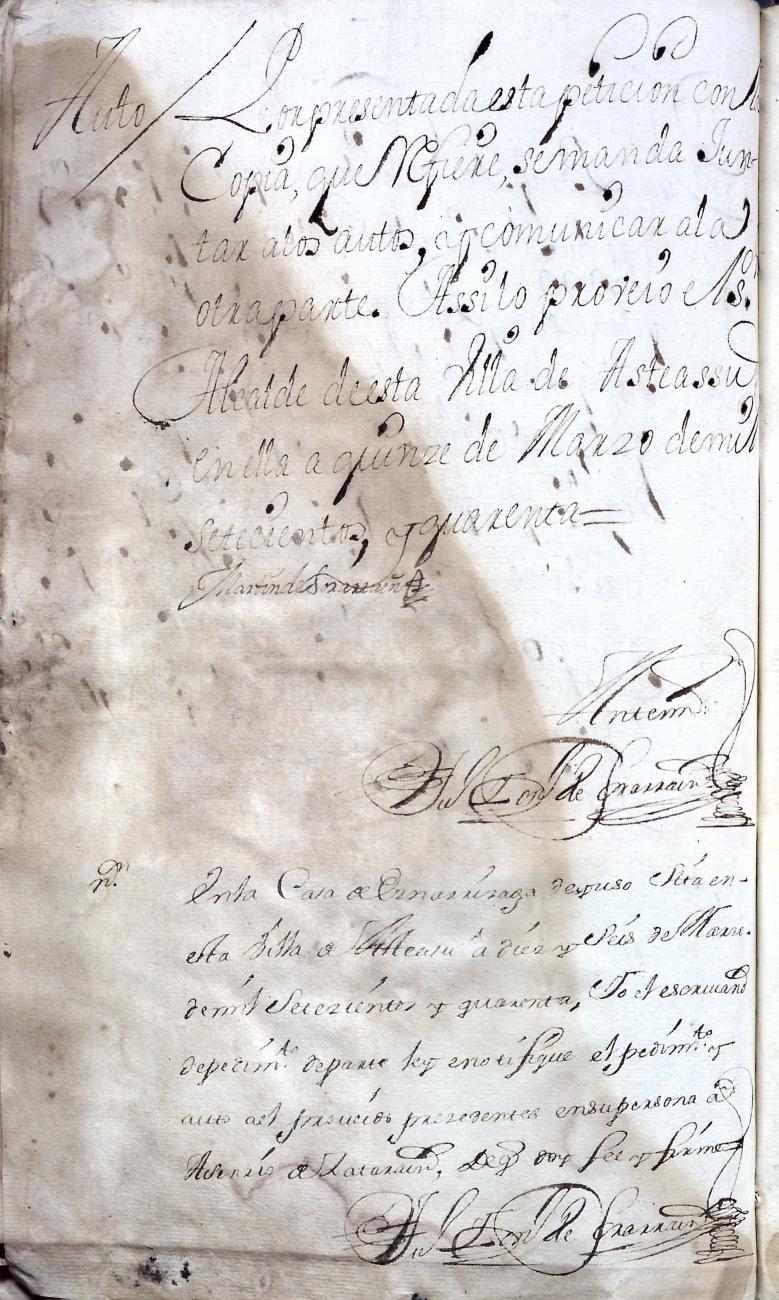 Auto / Por presentada esta peticion con la
Copia, que Refiere, se manda Jun-
tar alos autos, y comunicar ala
otra parte. Assi lo proveio el s.or
Alcalde de esta Villa de Asteassu
en ella a quinze de Marzo de mil
setecientos, y quarenta =
Martin de
Antemi
de
n.n En la Casa de depuso Sita en-
esta Villa de Asteasu a diez y Seis de Marzo
de mil Setezientos y quarenta, Yo el escrivano
de pedim.to de parte ley enotifique el pedim.to y
auto ael proveido prezedentes en su persona a
de Zatarain, de q doy fee y firme
de